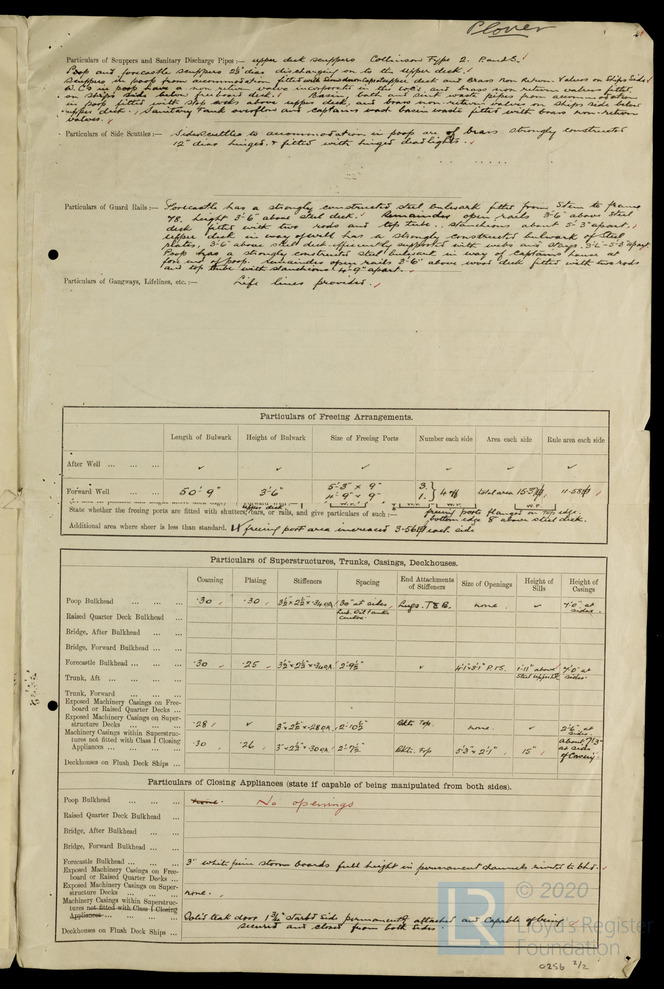 Plover
Particulars of Scuppers and Sanitary Discharge Pipes :— upper deck scuppers Collinson Type 2. P and S.
Poop and forecastle scuppers 2½" dia discharging on to the upper deck.
Scuppers in poop from accommodation fitted with screw down caps at upper deck and Brass Non Return Valves on Ships Sides
W.Cs in poop have a non return valve incorporated in the W.C.s, and brass non return valves fitted
on ships side below freeboard deck. Basin, bath and sink waste pipes from accommodation
in poop fitted with stop cocks above upper deck, and brass non-return valves on ships side below
upper deck. Sanitary Tank overflow and captains wash basin waste fitted with brass non-return
valves.
Particulars of Side Scuttles :— Sidescuttles to accommodation in poop are of brass strongly constructed
12" dia hinged, & fitted with hinged deadlights.
Particulars of Guard Rails :— Forecastle has a strongly constructed steel bulwark fitted from Stem to frame
78, height 3'-6" above steel deck. Remainder open rails 3'6" above steel
deck fitted with two rods and top tube. Stanchions about 5'3" apart.
Upper deck in way of well has a strongly constructed bulwark of steel
plates, 3'-6" above steel deck efficiently supported with webs and stays
Poop has a strongly constructed steel bulwark in way of Captains house at
end of poop. remainder open rails 3'-6" above wood deck fitted with two rods
and top tube with stanchions 4'-9" apart.
Particulars of Gangways, Lifelines, etc. :— Life lines provided.
Particulars of Freeing Arrangements.
Length of Bulwark Height of Bulwark Size of Freeing Ports Number each side Area each side Rule area each side
After Well ✓ ✓ ✓ ✓ ✓ ✓
Forward Well 50' 9" 3'6" 5'-3" × 9" 3. 4
4'-9" × 9" 1.
State whether the freeing ports are fitted with shutters, bars, or rails, and give particulars of such :— freeing ports flanged on top edge.
bottom edge 8" above steel deck.
Additional area where sheer is less than standard. freeing port area increased each side
Particulars of Superstructures, Trunks, Casings, Deckhouses.
Coaming Plating Stiffeners Spacing End Attachments of Stiffeners Size of Openings Height of Sills Height of Casings
Poop Bulkhead .30 .30 3½" × 2½" × .34 BA 30" at sides, Lugs. T & B. none. ✓ 7'0" at sides.
Raised Quarter Deck Bulkhead
Bridge, After Bulkhead
Bridge, Forward Bulkhead
Forecastle Bulkhead .30 .25 2'-9½" ✓ 4'1" × 3'1" P.&S. 1'-11" above 7'0" at sides.
Trunk, Aft
Trunk, Forward
Exposed Machinery Casings on Free-
board or Raised Quarter Decks
Exposed Machinery Casings on Super-
structure Decks .28 ✓ 3" × 2½" × .28 BA 2'-10½" Bkts. Top. none. ✓ 2'6" at sides.
Machinery Casings within Superstruc-
tures not fitted with Class I Closing
Appliances .30 .26 3" × 2½" × .30 BA 2'-7½" Bkts. Top 5'3" × 2'1" 15" about 7'3" at sides of Casing
Deckhouses on Flush Deck Ships
Particulars of Closing Appliances (state if capable of being manipulated from both sides).
Poop Bulkhead none. No openings
Raised Quarter Deck Bulkhead
Bridge, After Bulkhead
Bridge, Forward Bulkhead
Forecastle Bulkhead 3" white pine storm boards full height in permanent channels riveted to bhd.
Exposed Machinery Casings on Free-
board or Raised Quarter Decks
Exposed Machinery Casings on Super-
structure Decks none.
Machinery Casings within Superstruc-
tures not fitted with Class I Closing
Appliances Solid teak door 1¾" starbd side permanently attached and capable of being
secured and closed from both sides.
Deckhouses on Flush Deck Ships
LR
© 2020
Lloyd's Register
Foundation
0256 2/2